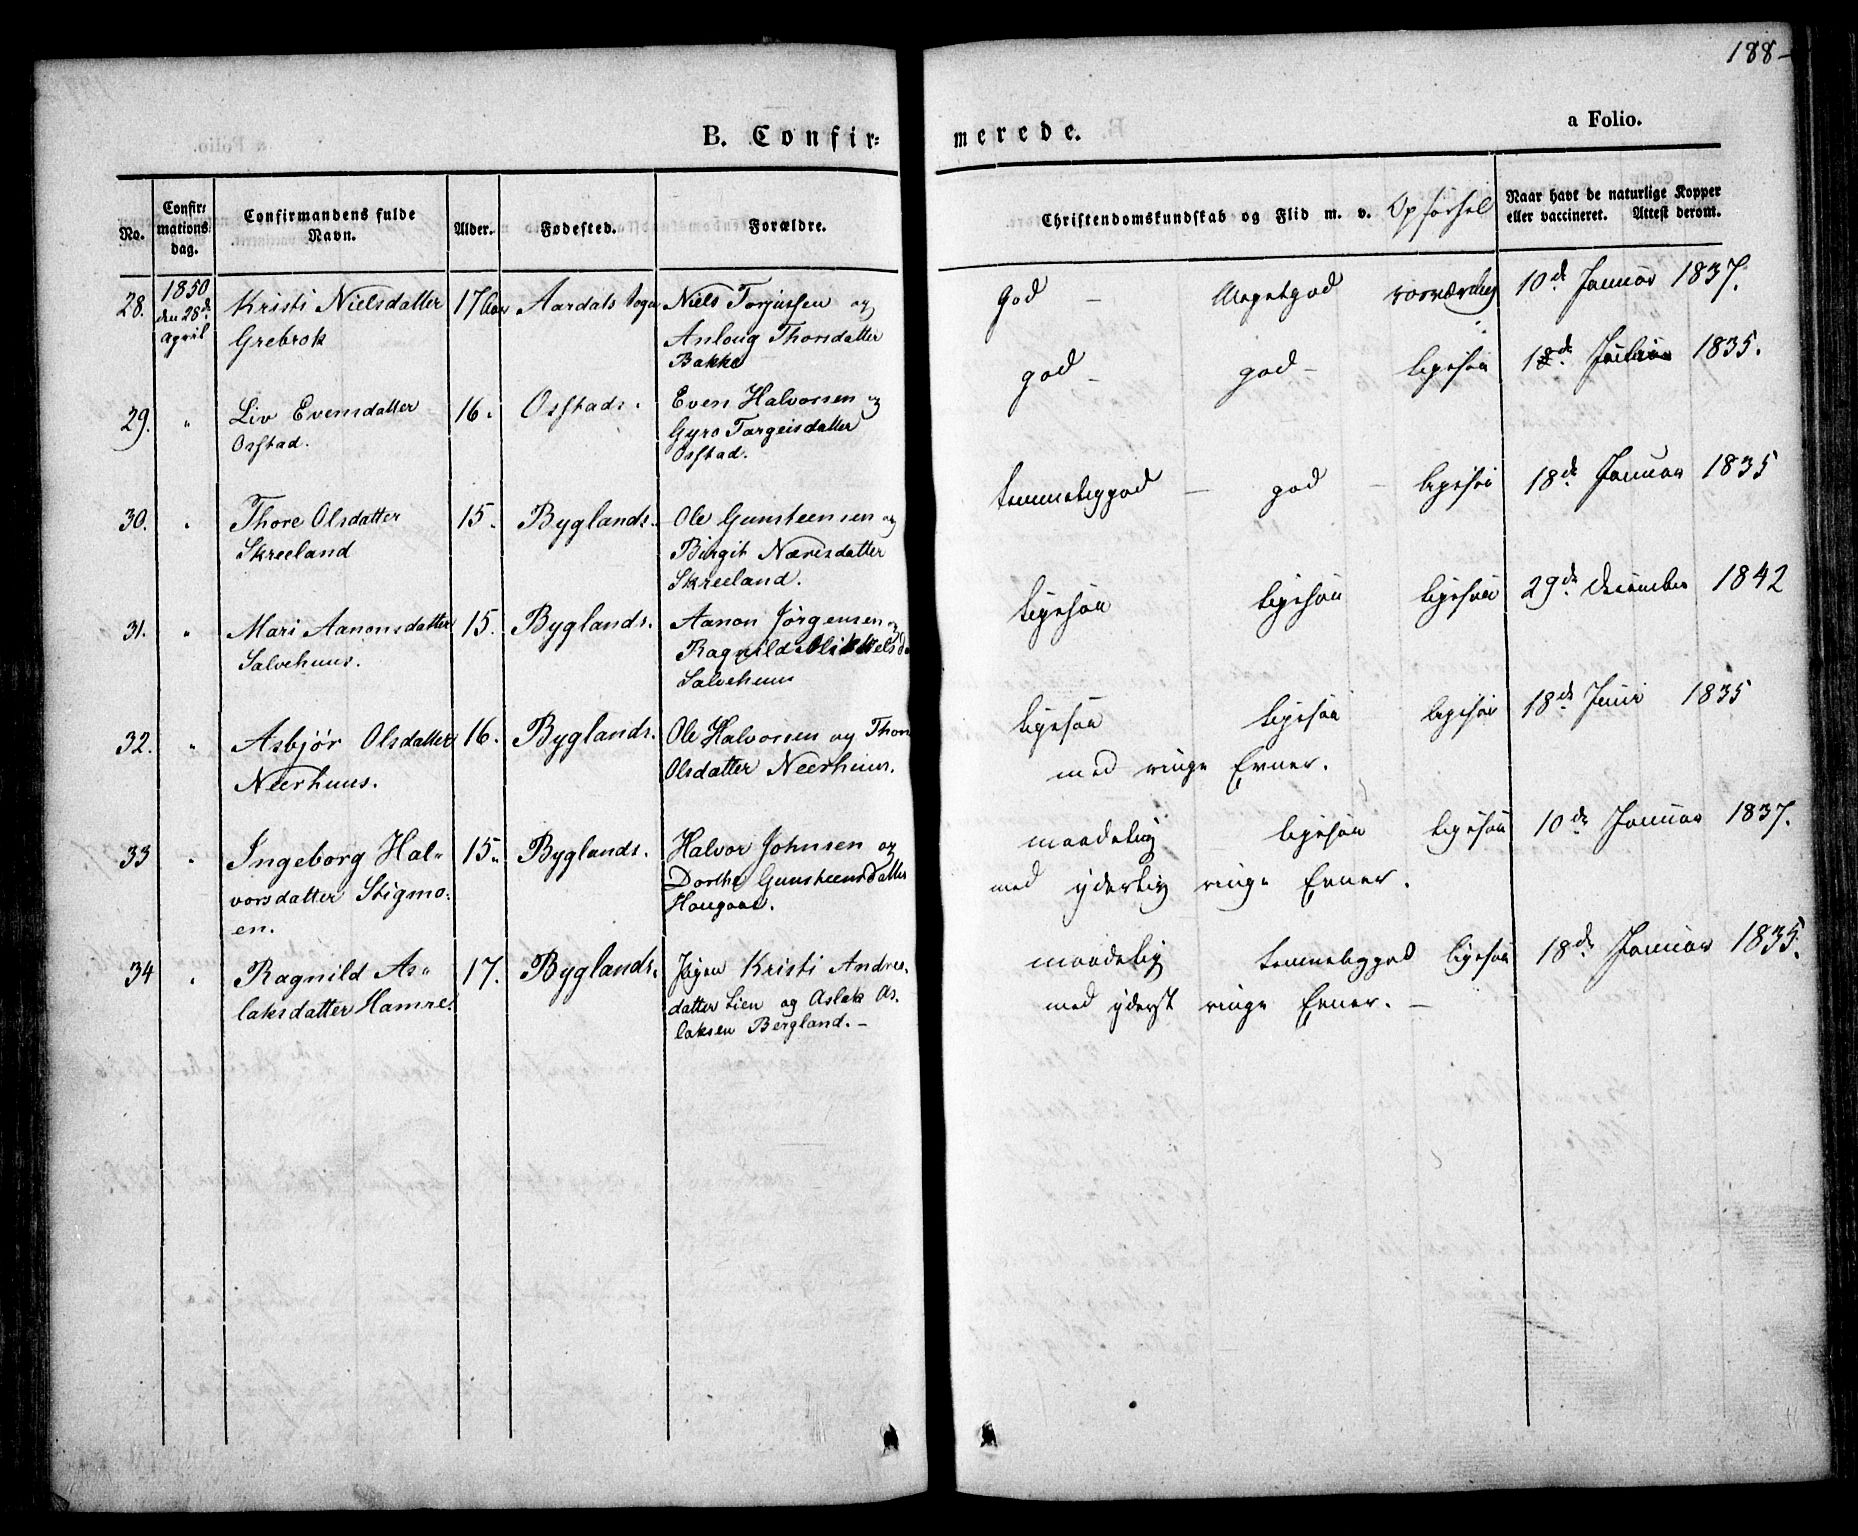 188-
B. Confir= merede.
a Folio.
No.
Confir=
mations
dag.
Confirmandens fulde
Navn.
Alder.
Fødested.
Forældre.
Christendomskundskab og Flid m. v. Opførsel
Naar havt de naturlige Kopper
eller vaccineret. Attest derom.
28. 1850 den 28de April
Kristi Nielsdatter
Grebrok
17 Aar
Aardals Sogn
Niels Torjussen og
Anloug Thorsdatter
Bakke
God - Megetgod
10de Januar 1837.
29. "
Liv Evensdatter
Osstad.
16.
Osstads.
Even Halvorsen og
Gyro Targeisdatter
Osstad.
god - god - ligesaa
1835.
30. "
Thore Olsdatter
Skreeland
15.
Byglands.
Ole Gunsteensen og
Birgit Næridatter
Skreeland.
temmeliggod - god - ligesaa
18de Januar 1835
31. "
Mari Aanonsdatter
Salvehuus.
15.
Byglands.
Aanon Jørgensen og
Ragnild Mikkelsd
Salvehuus
ligesaa ligesaa ligesaa
29de December 1842
32. "
Asbjør Olsdatter
Neerhuus.
16.
Byglands.
Ole Halvorsen og Thon
Olsdatter Neerhuus.
ligesaa ligesaa ligesaa
med ringe Evner.
18de Juni 1835
33 "
Ingeborg Hal-
vorsdatter Stigmo-
en.
15.
Byglands.
Halvor Johnsen og
Dorthe Gunsteensdatter
Haugaae.
maadelig ligesaa ligesaa
med yderlig ringe Evner.
10de Januar 1837.
34 "
Ragnild As-
laksdatter Hamre.
17.
Byglands.
Kristi Andres-
datter Lien og Aslak As-
laksen Bergland. -
maadelig temmeliggod ligesaa
med yderst ringe Evner. -
18de Januar 1835.